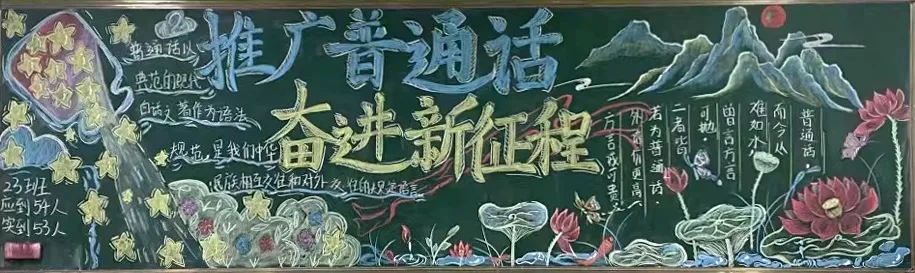 推广普通话
奋进新征程
普通话以
典范的现代
白话文著作为语法
规范是我们中华
民族相互交往和对外交往的规定语言
23班
应到54人
实到53人
普通话
而今从
难如水
曾言方言
可抛
二者皆
若为普通话
方言我可贵